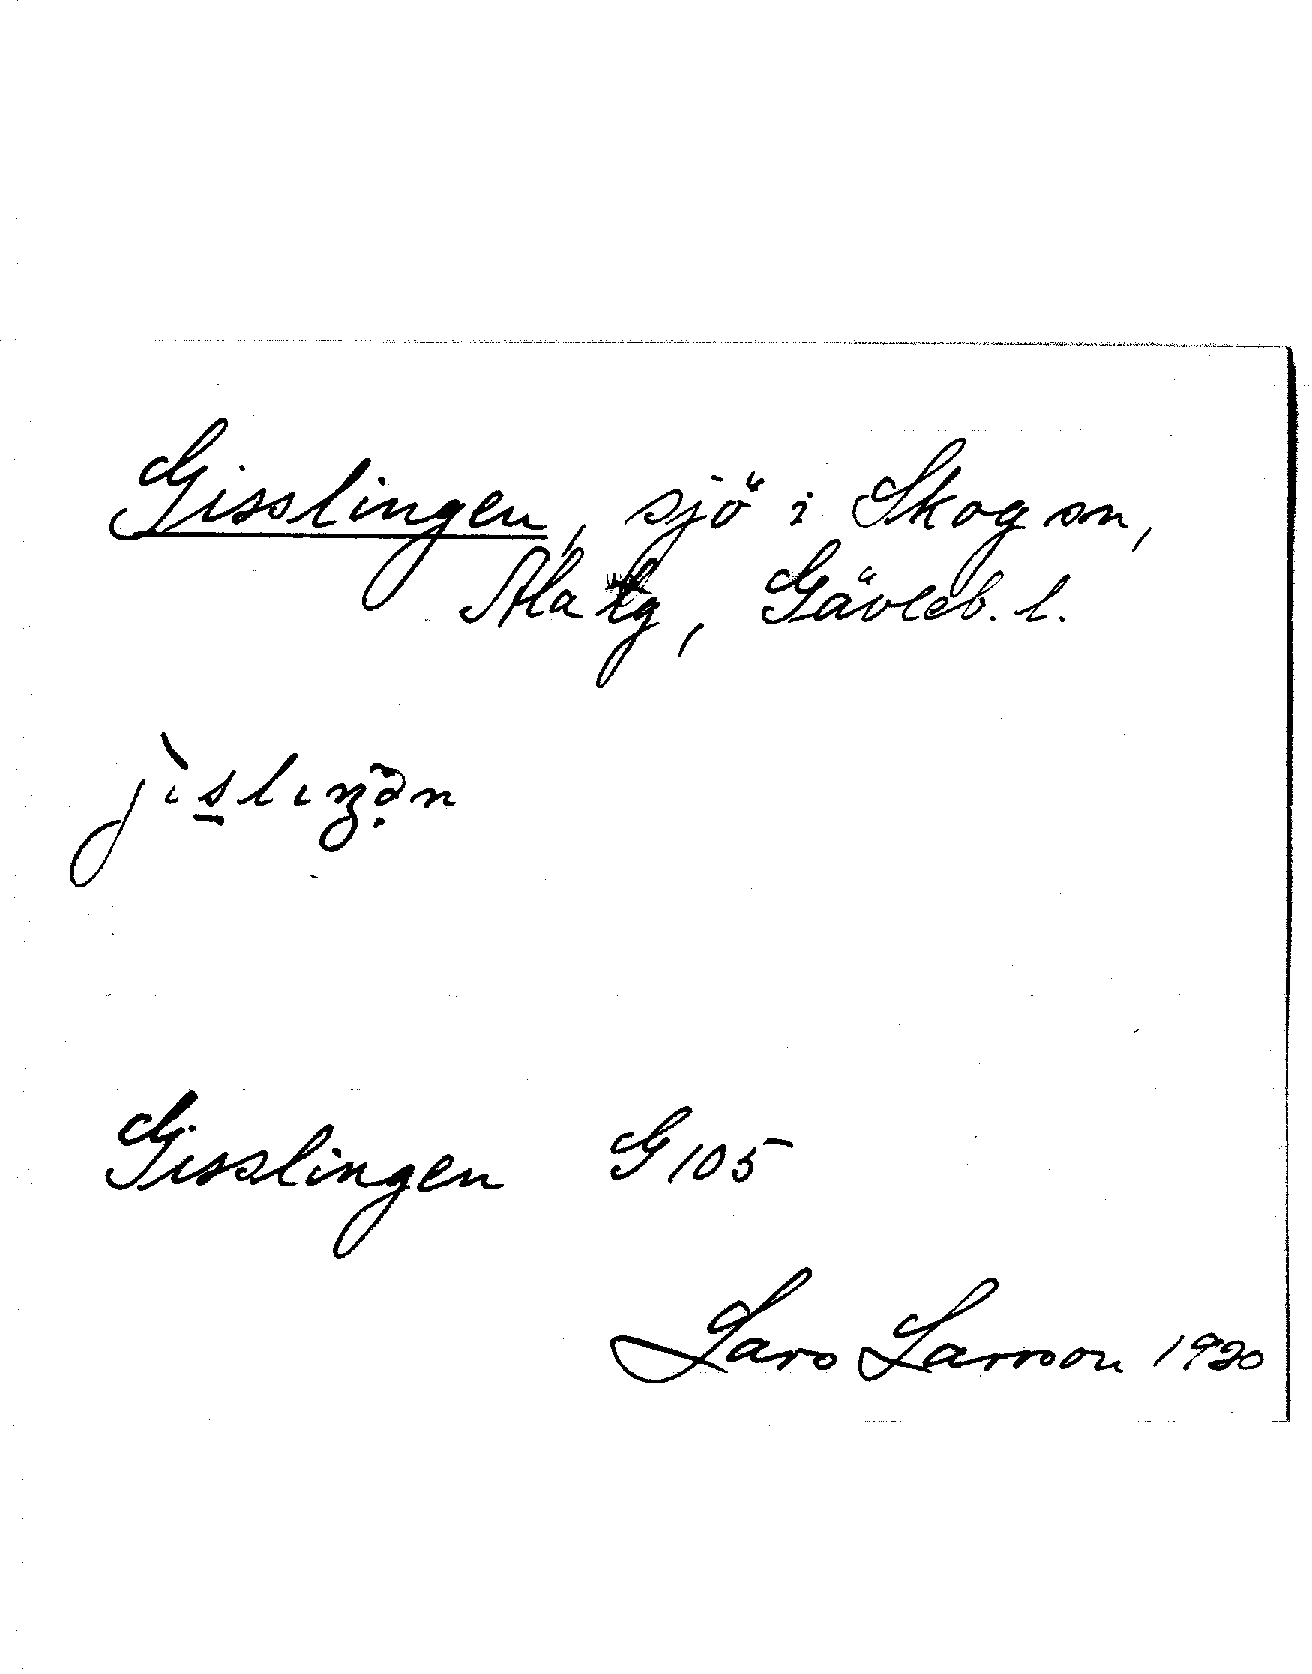 Gisslingen, sjö i Skog sn,
Ala tg, Gävleb. l.
j̀ıs̲lıŋən
Gisslingen G 105
Lars Larsson 1920